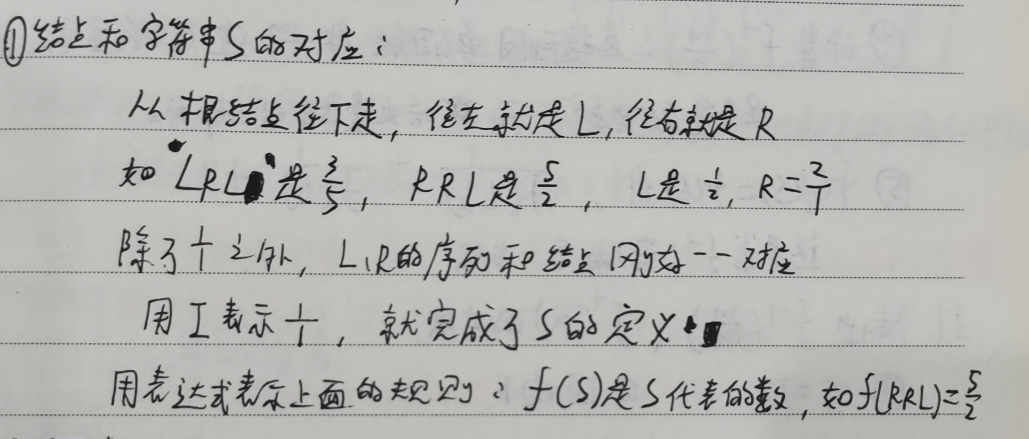 ①结点和字符串S的对应：
从根结点往下走，往左就是L，往右就是R
如"LRL"是3/5，RRL是5/2，L是1/2，R=2/1
除了1/1之外，L,R的序列和结点刚好一一对应
用I表示1/1，就完成了S的定义
用表达式表示上面的规则：f(S)是S代表的数，如f(RRL)=5/2